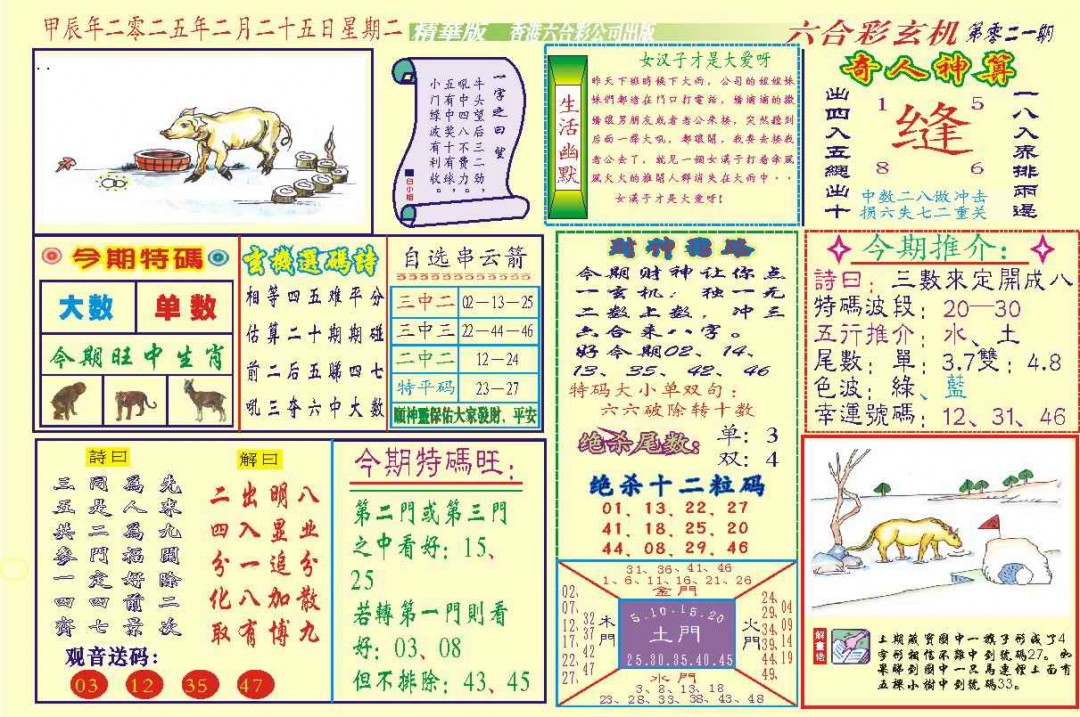 甲辰年二零二五年二月二十五日星期二
精華版
香港六合彩公司出版
六合彩玄机 第零二一期
一字之曰:望
牛头望后三二劲,
吼中四八不费力。
五有中奖有十球,
小门绿波有利收。
白小姐
生活幽默
女汉子才是大爱呀
昨天下班時候下大雨,公司的姐姐妹
妹們都堵在門口打電話,
后面一聲大吼,都讓開,我要去接我
老公去了,就见一個女漢子打着傘風
風火火的推開人群消失在大雨中··
女漢子才是大爱呀!
奇人神算
一八入界排兩邊
出四入五總出十
1 5
缝
8 6
中数二八做冲击
损六失七二重关
今期特碼
大数 单数
今期旺中生肖
玄機選碼詩
相等四五难平分
估算二十期期碰
前二后五睇四七
吼三夺六中大数
自选串云箭
三中二 02—13—25
三中三 22—44—46
二中二 12—24
特平码 23—27
順神靈保佑大家發財、平安
今期财神让你点
一玄机:独一无
二数上数,冲三
六合来八字。
好令期02、14、
13、35、42、46
特码大小单双句:
六六破除转十数
绝杀尾数:
单:3
双:4
绝杀十二粒码
01、13、22、27
41、18、25、20
44、08、29、46
今期推介:
詩曰:三數來定開成八
特碼波段:20—30
五行推介:水、土
尾數:單:3.7雙:4.8
色波:綠、藍
幸運號碼:12、31、46
詩曰
先來九開除二次
為人為招好前景
同是二門定四七
三五共參一四齊
解曰
八业分散加博九
明显追
出入一八有
二四分化取
观音送码:
03 12 35 47
今期特碼旺:
第二門或第三門
之中看好:15、
25
若轉第一門則看
好:03、08
但不排除:43、45
31、36、41、46
1、6、11、16、21、26
金門
02、07、12、17、22、27、
32 37 42 47
木門
5.10.15.20
土門
25.30.35.40.45
火門
24、29、34、39、44、49、
04 09 14 19
水門
3、8、13、18
23、28、33、38、43、48
解畫佬
上期藏寶圖中一猴子形成了4
字形相信不難中到號碼27。如
果睇到圖中一只馬連埋上面有
五棵小樹中到號碼33。